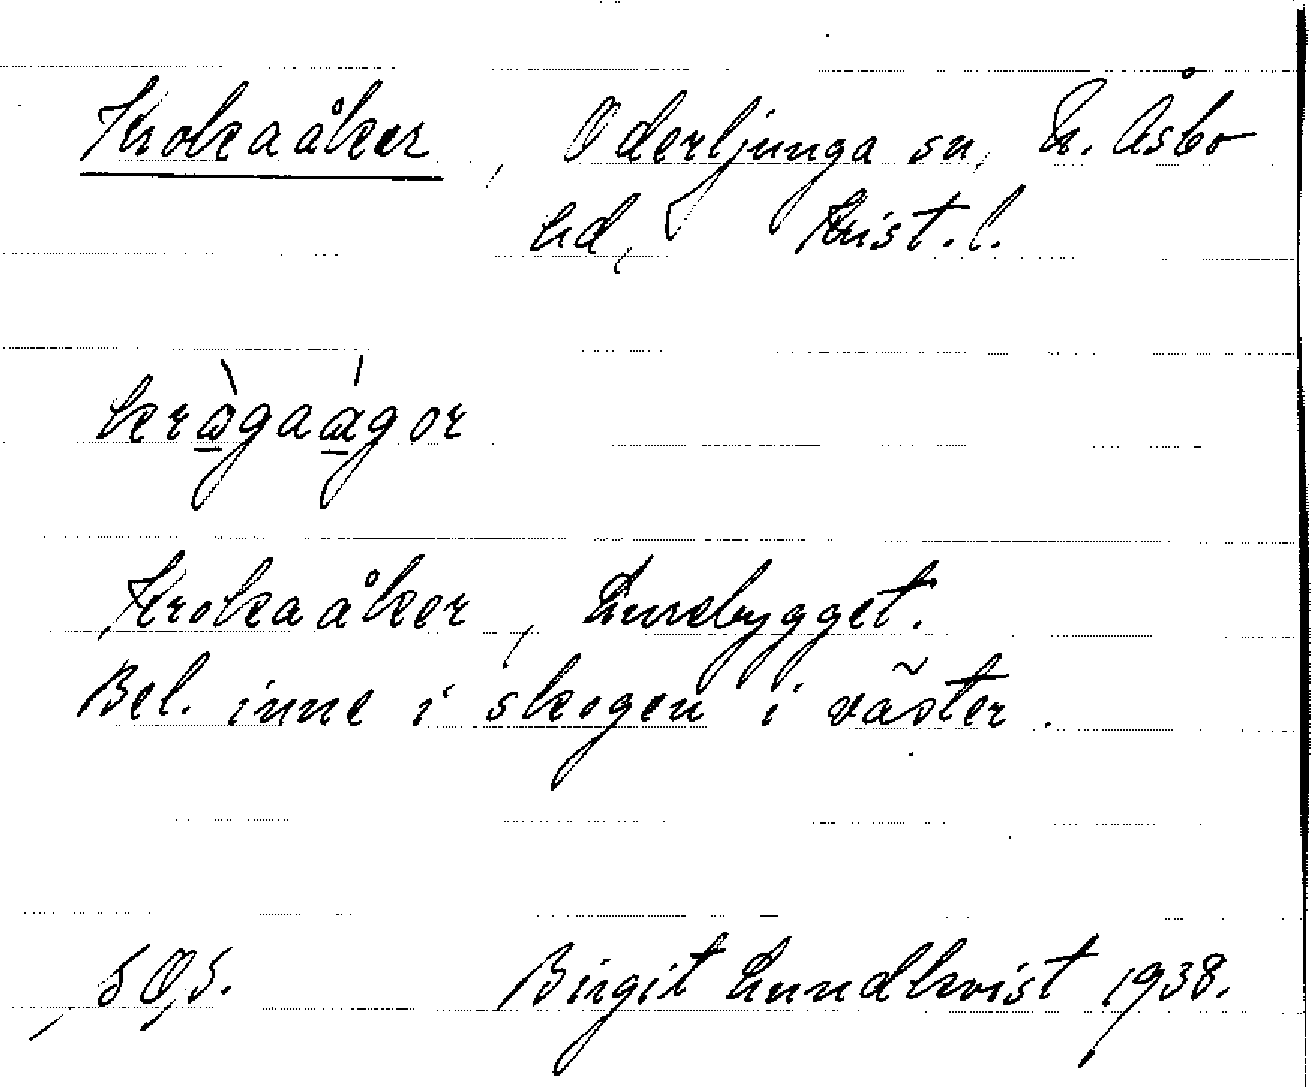 Krokaåker, Oderljunga sn, N. Åsbo
hd, Krist. l.
kràgaágor
Krokaåker, Lundbygget.
Bel. inne i skogen i väster.
Birgit Lundkvist 1938.